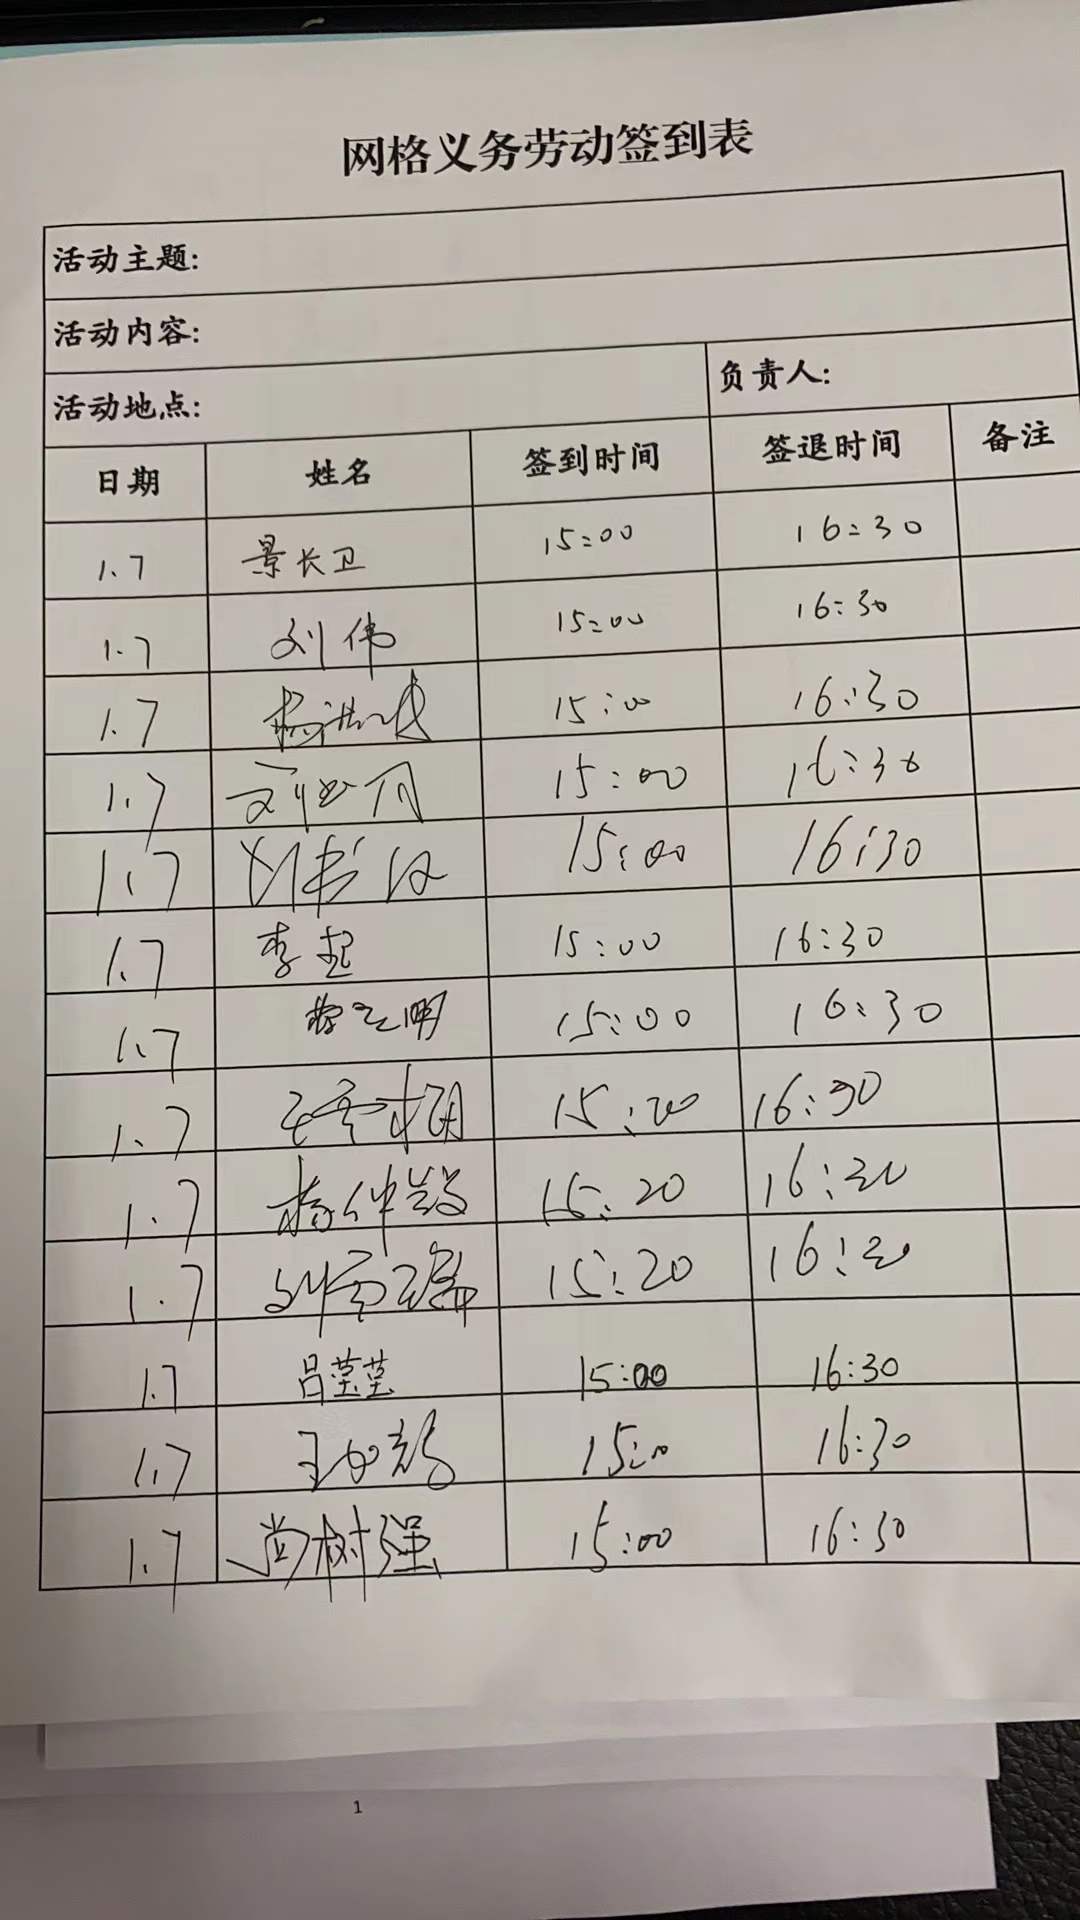 网格义务劳动签到表
活动主题:
活动内容:
活动地点: 负责人:
日期 姓名 签到时间 签退时间 备注
1.7 景长卫 15:00 16:30
1.7 刘伟 15:00 16:30
1.7 15:00 16:30
1.7 15:00 16:30
1.7 15:00 16:30
1.7 李起 15:00 16:30
1.7 15:00 16:30
1.7 16:30
1.7 15:20
1.7 15:20
1.7 吕莹莹 15:00 16:30
1.7 15:00 16:30
1.7 尚树强 15:00 16:30
1